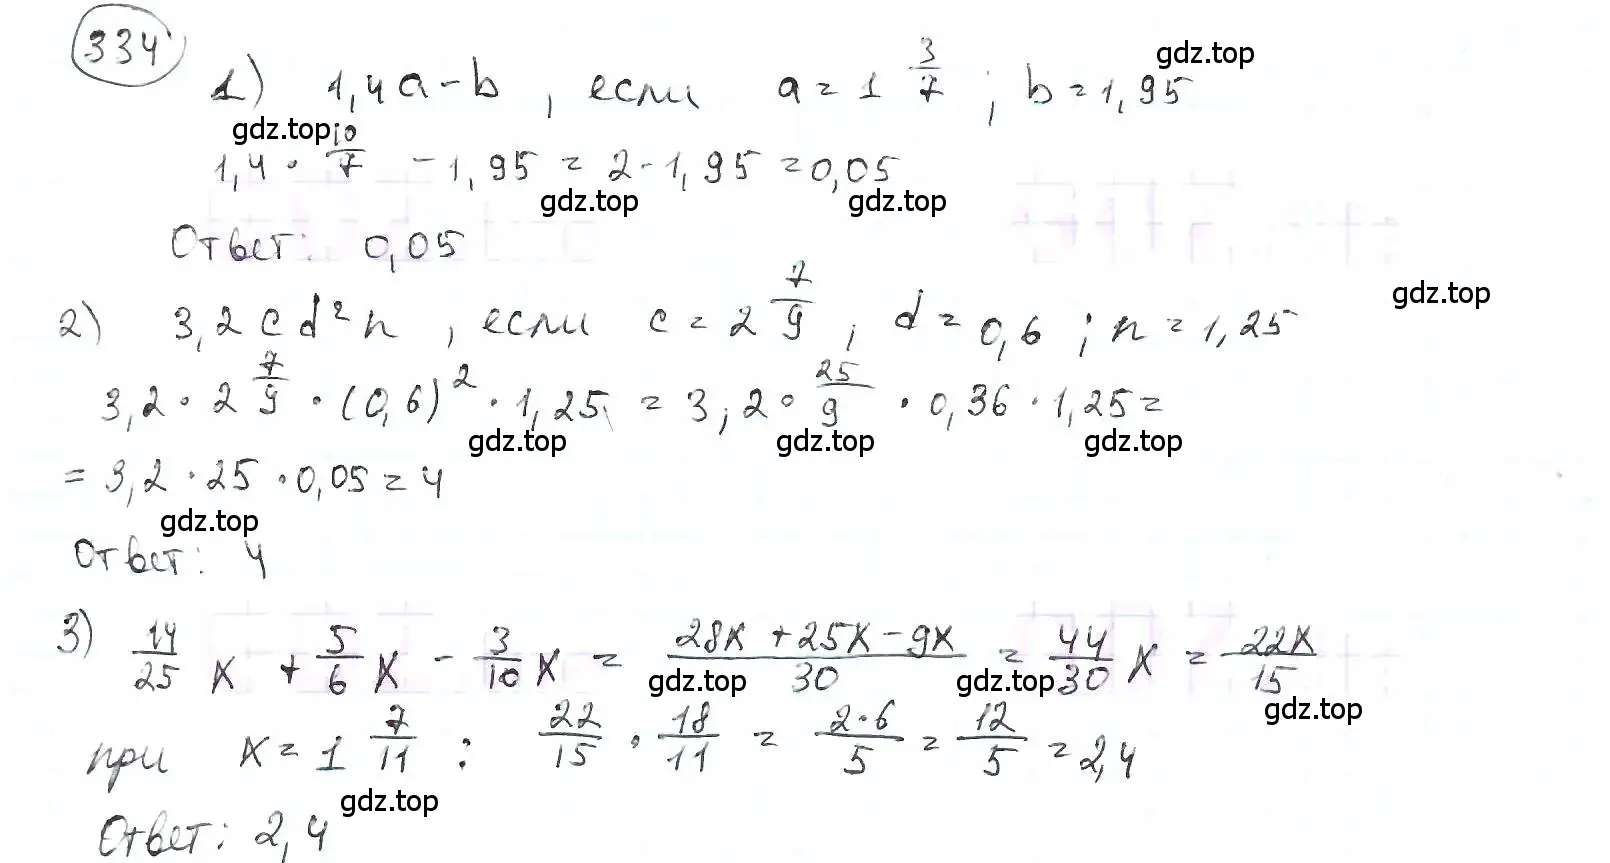 334
1) 1,4a-b , если a = 1 3/7 ; b = 1,95
gdz.top
gdz.top
1,4 · 10/7 - 1,95 = 2 - 1,95 = 0,05
gdz.top gdz.top
Ответ: 0,05
gdz.top
2) 3,2cd²n , если c = 2 7/9 ; d = 0,6 ; n = 1,25
3,2 · 2 7/9 · (0,6)² · 1,25 = 3,2 · 25/9 · 0,36 · 1,25 =
gdz.top gdz.top gdz.top
= 3,2 · 25 · 0,05 = 4
gdz.top
Ответ: 4
3) 14/25 x + 5/6 x - 3/10 x = 28x + 25x - 9x/30 = 44/30 x = 22x/15
gdz.top gdz.top gdz.top
при x = 1 7/11 : 22/15 · 18/11 = 2·6/5 = 12/5 = 2,4
gdz.top
Ответ: 2,4